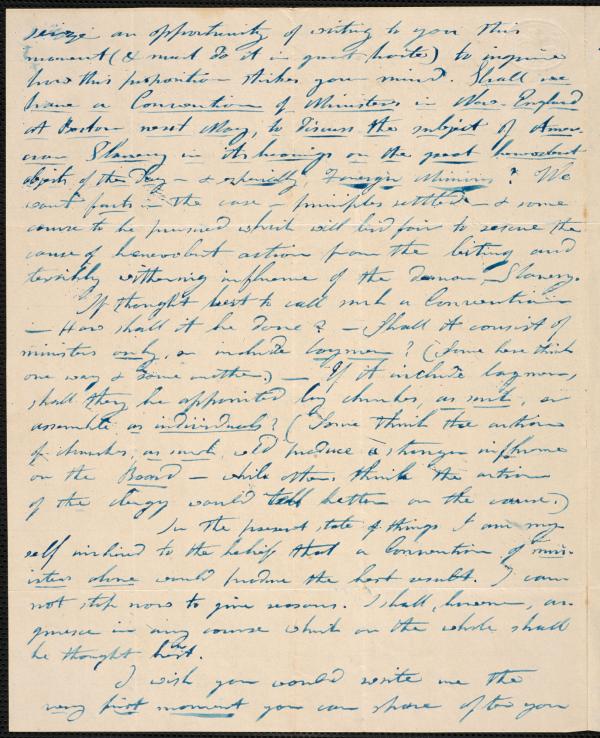 seize an opportunity of writing to you this
moment (& must do it in great haste) to inquire
how this proposition strikes your mind. Shall we
have a Convention of Ministers in New-England
at Boston next May, to discuss the subject of Amer-
ican Slavery in its bearings on the great benevolent
objects of the day – & especially Foreign Missions? We
want facts in the case – principles settled – & some
course to be pursued which will bid fair to rescue the
cause of benevolent action from the blasting and
terribly withering influence of the demon – Slavery.
If thought best to call such a Convention
– How shall it be done? – Shall it consist of
ministers only, or include laymen? (Some here think
one way & some another.) – If it include laymen,
shall they be appointed by churches, as such, or
assemble as individuals? (Some think the action
of churches, as such, wld produce a stronger influence
on the Board – while others think the action
of the clergy would tell better on the cause.)
In the present state of things I am my-
self inclined to the belief that a Convention of min-
isters alone would produce the best result. I can
not stop now to give reasons. I shall, however, ac-
quiesce in any course which on the whole shall
be thought the best.
I wish you would write me the
very first moment you can spare after you